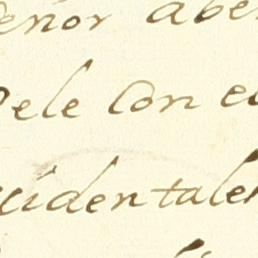 enor abe
ele Con el
cidentales